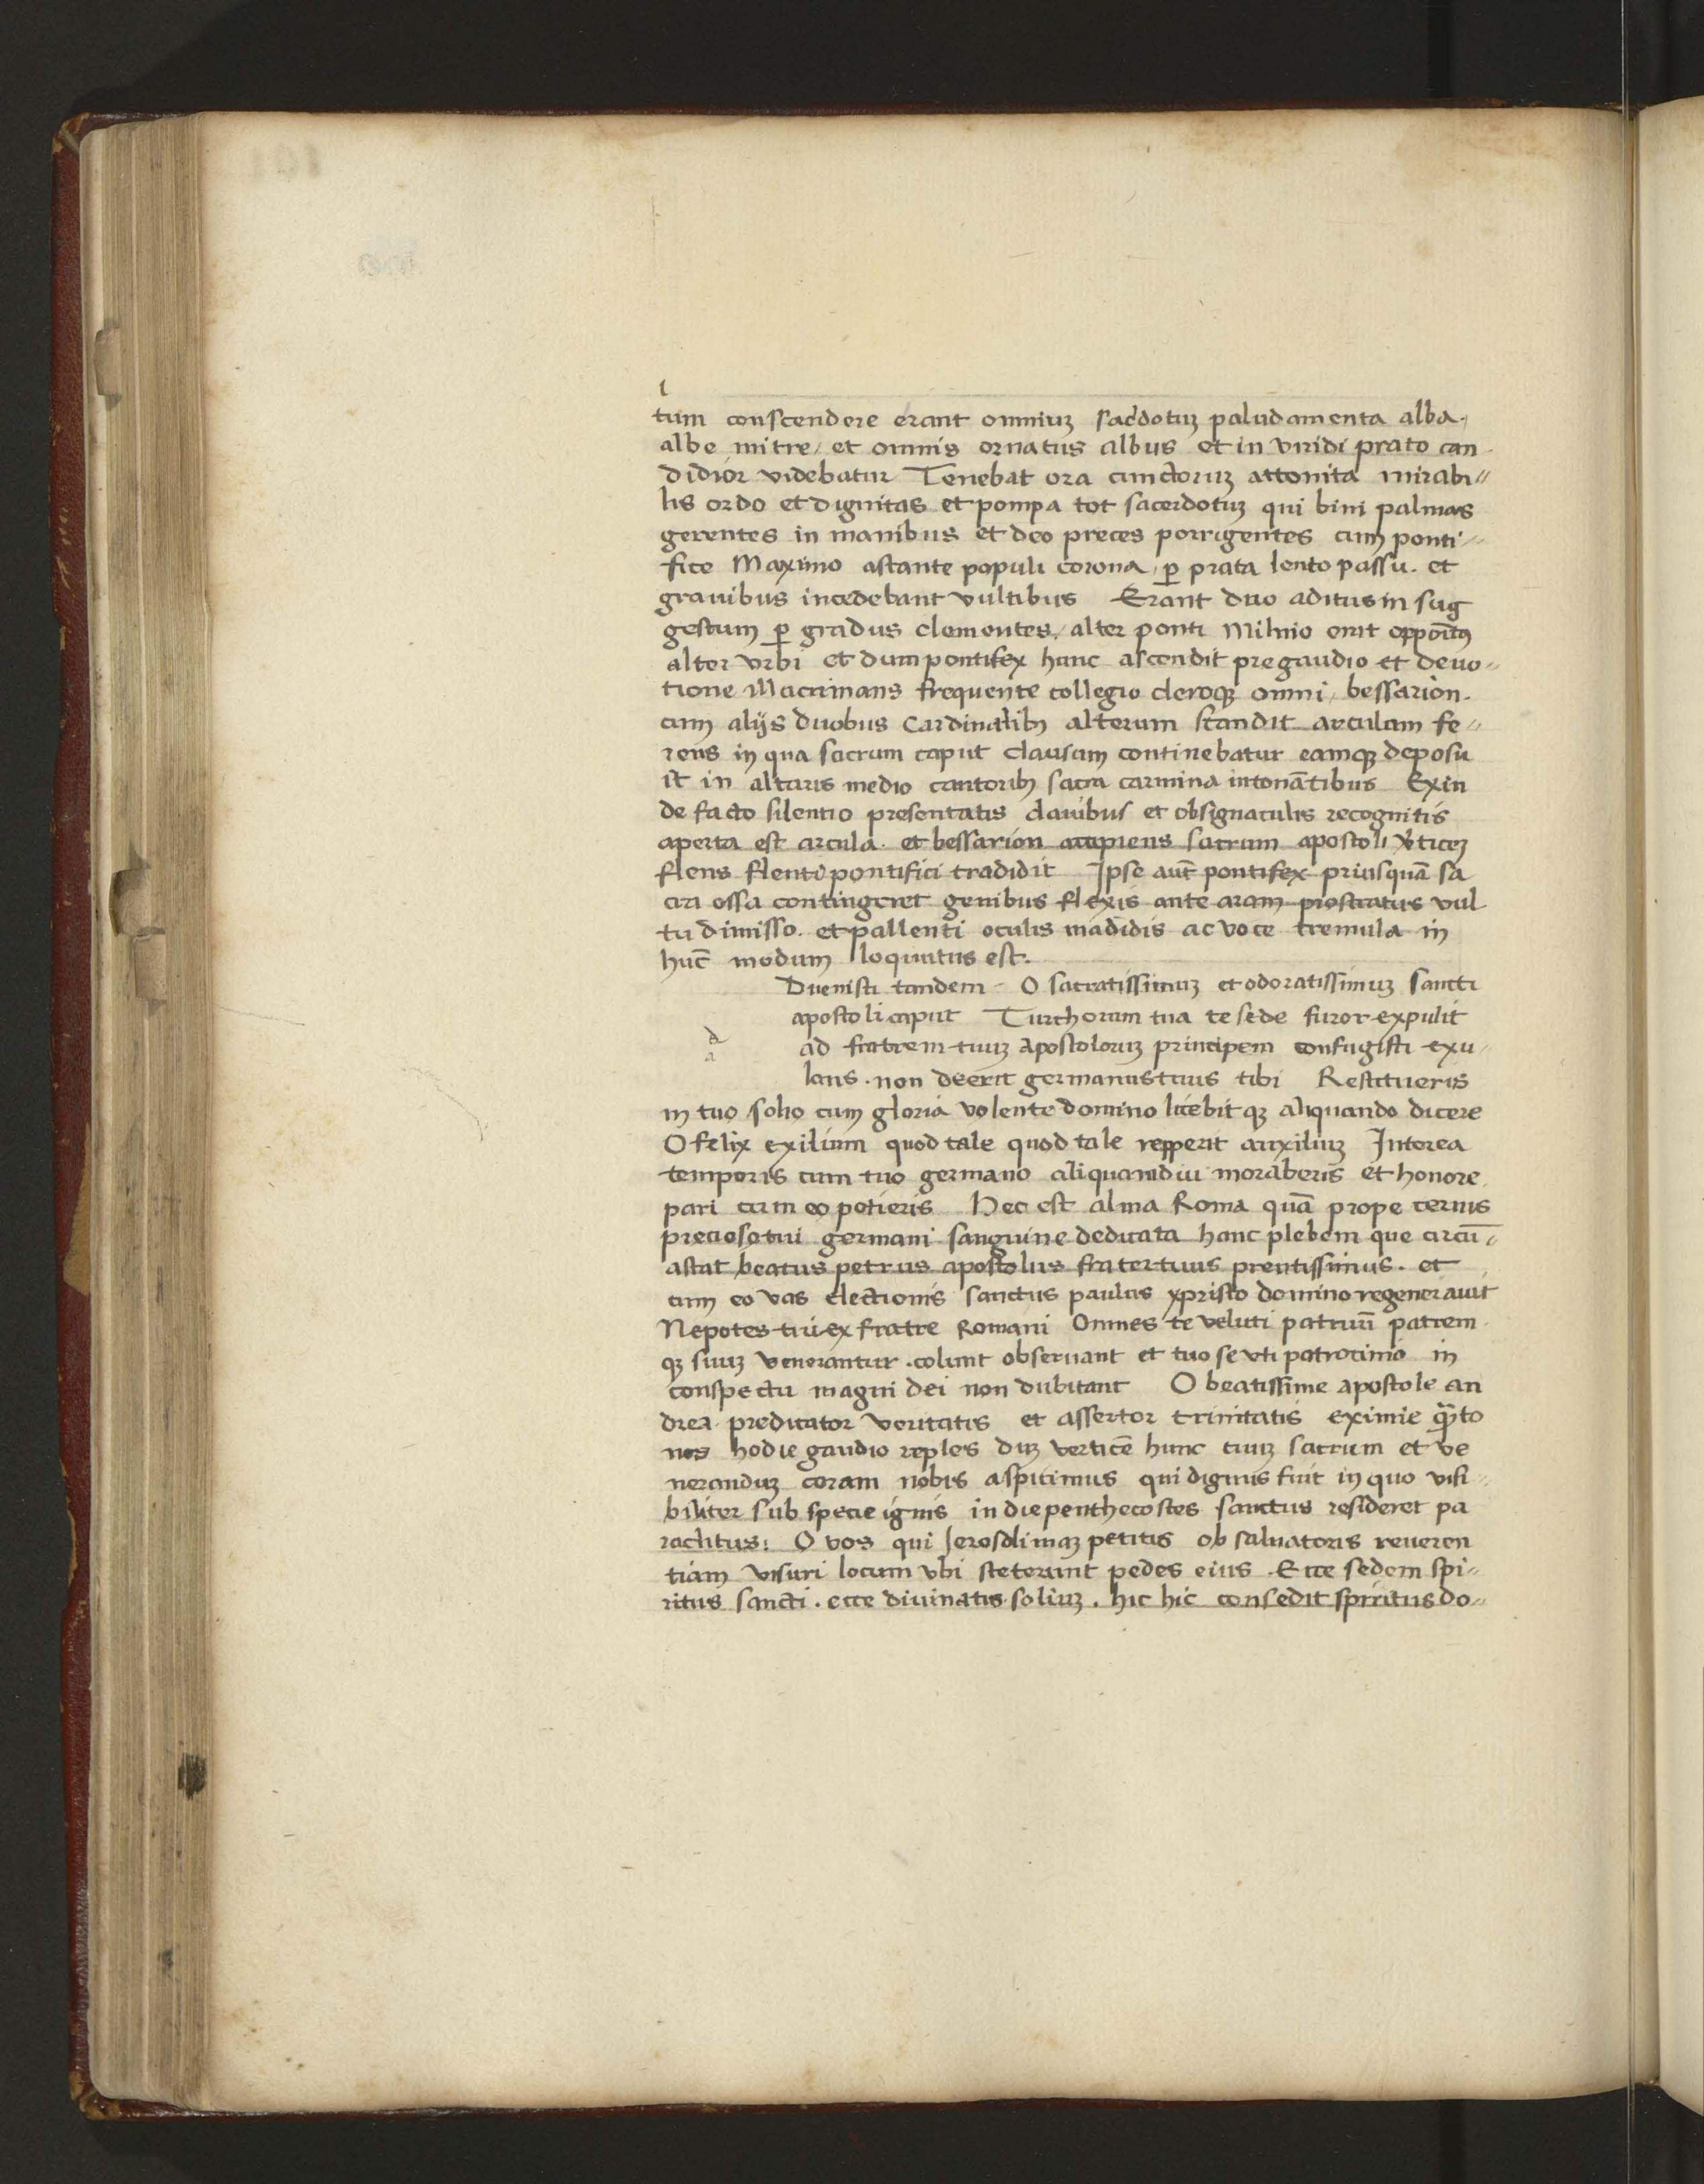 tum conscendere erant omniuꝫ sacdotuꝫ paludamenta alba.
albe mitre / et omnis ornatus albus et in viridi prato can
didior videbatur Tenebat ora cunctoruꝫ attonita mirabi〃
lis ordo et dignitas et pompa tot sacerdotuꝫ qui bini palmas
gerentes in manibus et deo preces porrigentes cum ponti〃
fice Maximo astante populi corona, ꝑ prata lento passu. et
grauibus incedebant vultibus Erant duo aditus in sug
gestum ꝑ gradus clementes, alter ponti Miluio erat oppoītꝰ
alter vrbi et dum pontifex hunc ascendit pre gaudio et deuo〃
tione lllacrimans frequente collegio cleroqꝫ omni, bessarion.
cum alijs duobus Cardinalibꝫ alterum scandit arculam fe〃
rens in qua sacrum caput clausum continebatur eamqꝫ deposu
it in altaris medio cantoribꝫ sacra carmina intonātibus Exin
de facto silentio presentatis clauibus et obsignaculis recognitis
aperta est arcula. et bessarion accipiens sacrum apostoli v̓ticeꝫ
flens flenti pontifici tradidit Ipse aut̄ pontifex priusquā sa
cra ossa contingeret genibus flexis ante aram prostratus vul
tu dimisso. et pallenti oculis madidis ac voce tremula in
huc̄ modum loquutus est.
Duenisti tandem - O sacratissimuꝫ et odoratissimuꝫ sancti
apostoli caput Turchorum tua te sede furor expulit
a
ad fratrem tuuꝫ Apostoloruꝫ principem confugisti exu〃
lans. non deerit germanus tuus tibi Restitueris
in tuo solio cum gloria volente domino licebit qꝫ aliquando dicere
O felix exilium quod tale quod tale repperit auxiliuꝫ Interea
temporis cum tuo germano aliquamdiu moraberis et honore
pari cum eo potieris Hec est alma Roma quā prope cernis
precioso tui germani sanguine dedicata hanc plebem que circū〃
astat beatus petrus apostolus frater tuus prentissimus. et
cum eo vas electionis sanctus paulus xpristo domino regenerauit
Nepotes tui ex fratre Romani Omnes te veluti patruū patrem
qꝫ suuꝫ venerantur. colunt obseruant et tuo se vti patrocinio in
conspectu magni dei non dubitant O beatissime apostole an
drea. predicator veritatis et assertor trinitatis eximie qu̅to
nos hodie gaudio reples duꝫ verticē hunc tuuꝫ sacrum et ve
nerandum coram nobis aspicimus qui dignus fuit in quo visi〃
biliter sub specie ignis in die penthecostes sanctus resideret pa
raclitus: O vos qui Ierosolimaꝫ petitis ob saluatoris reueren
tiam visuri locum vbi steterunt pedes eius. Ecce sedem spi〃
ritus sancti. ecce diuinatis soliuꝫ. hic hic consedit spiritus do〃